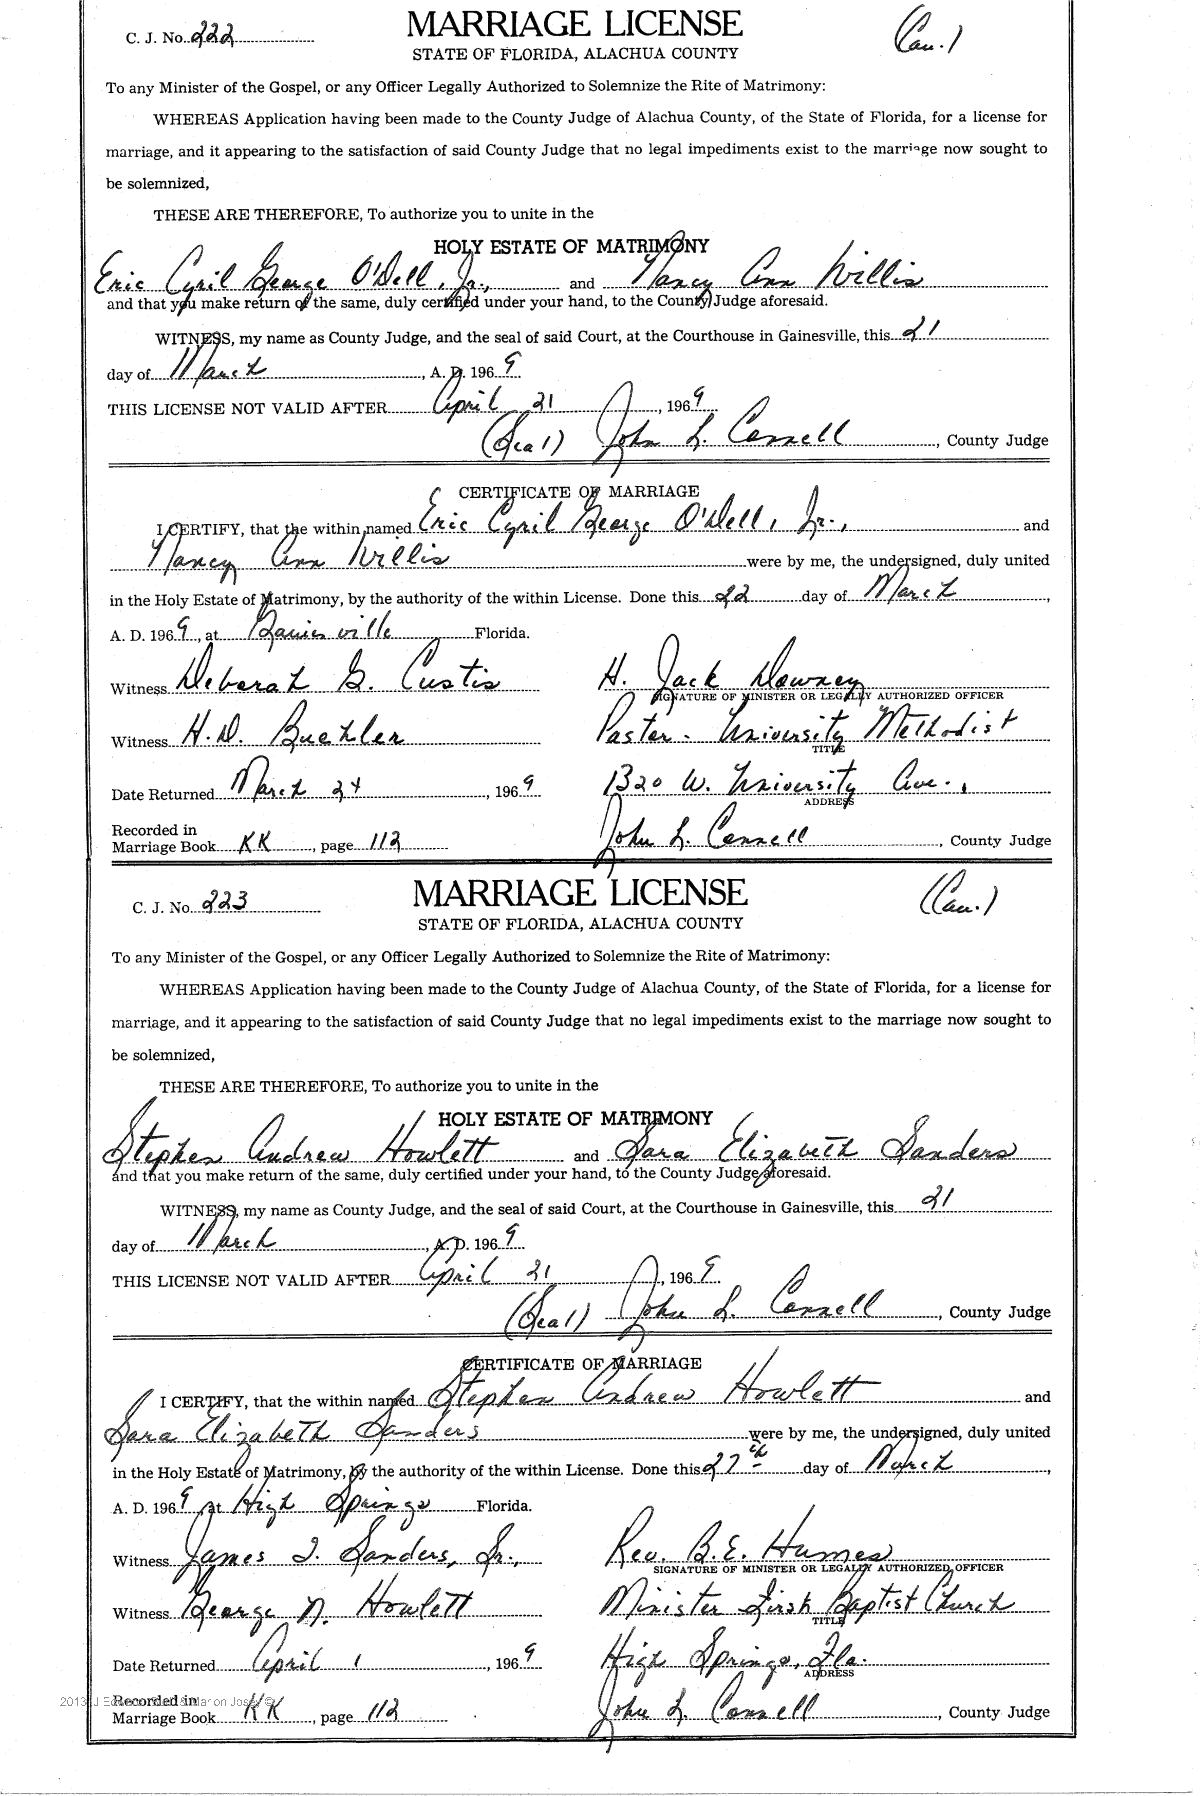 C. J. No. 222 MARRIAGE LICENSE (Cau.)
STATE OF FLORIDA, ALACHUA COUNTY
To any Minister of the Gospel, or any Officer Legally Authorized to Solemnize the Rite of Matrimony:
WHEREAS Application having been made to the County Judge of Alachua County, of the State of Florida, for a license for
marriage, and it appearing to the satisfaction of said County Judge that no legal impediments exist to the marriage now sought to
be solemnized,
THESE ARE THEREFORE, To authorize you to unite in the
HOLY ESTATE OF MATRIMONY
Eric Cyril George O'Dell, Jr., and Nancy Ann Willis
and that you make return of the same, duly certified under your hand, to the County Judge aforesaid.
WITNESS, my name as County Judge, and the seal of said Court, at the Courthouse in Gainesville, this 21
day of March, A. D. 1969
THIS LICENSE NOT VALID AFTER April 21, 1969
(Seal) John L. Connell, County Judge
CERTIFICATE OF MARRIAGE
I CERTIFY, that the within named Eric Cyril George O'Dell, Jr., and
Nancy Ann Willis were by me, the undersigned, duly united
in the Holy Estate of Matrimony, by the authority of the within License. Done this 22 day of March,
A. D. 1969, at Gainesville Florida.
Witness Deborah G. Custis H. Jack Downey
SIGNATURE OF MINISTER OR LEGALLY AUTHORIZED OFFICER
Witness H. D. Buchler Pastor - University Methodist
TITLE
Date Returned March 24, 1969 1320 W. University Ave.,
ADDRESS
Recorded in
Marriage Book KK, page 112 John L. Connell, County Judge
C. J. No. 223 MARRIAGE LICENSE (Cau.)
STATE OF FLORIDA, ALACHUA COUNTY
To any Minister of the Gospel, or any Officer Legally Authorized to Solemnize the Rite of Matrimony:
WHEREAS Application having been made to the County Judge of Alachua County, of the State of Florida, for a license for
marriage, and it appearing to the satisfaction of said County Judge that no legal impediments exist to the marriage now sought to
be solemnized,
THESE ARE THEREFORE, To authorize you to unite in the
HOLY ESTATE OF MATRIMONY
Stephen Andrew Howlett and Sara Elizabeth Sanders
and that you make return of the same, duly certified under your hand, to the County Judge aforesaid.
WITNESS, my name as County Judge, and the seal of said Court, at the Courthouse in Gainesville, this 21
day of March, A. D. 1969
THIS LICENSE NOT VALID AFTER April 21, 1969
(Seal) John L. Connell, County Judge
CERTIFICATE OF MARRIAGE
I CERTIFY, that the within named Stephen Andrew Howlett and
Sara Elizabeth Sanders were by me, the undersigned, duly united
in the Holy Estate of Matrimony, by the authority of the within License. Done this 27th day of March,
A. D. 1969 at High Springs Florida.
Witness James I. Sanders, Sr., Rev. B. E. Humes
SIGNATURE OF MINISTER OR LEGALLY AUTHORIZED OFFICER
Witness George N. Howlett Minister First Baptist Church
TITLE
Date Returned April 1, 1969 High Springs, Fla.
ADDRESS
Recorded in
Marriage Book KK, page 112 John L. Connell, County Judge